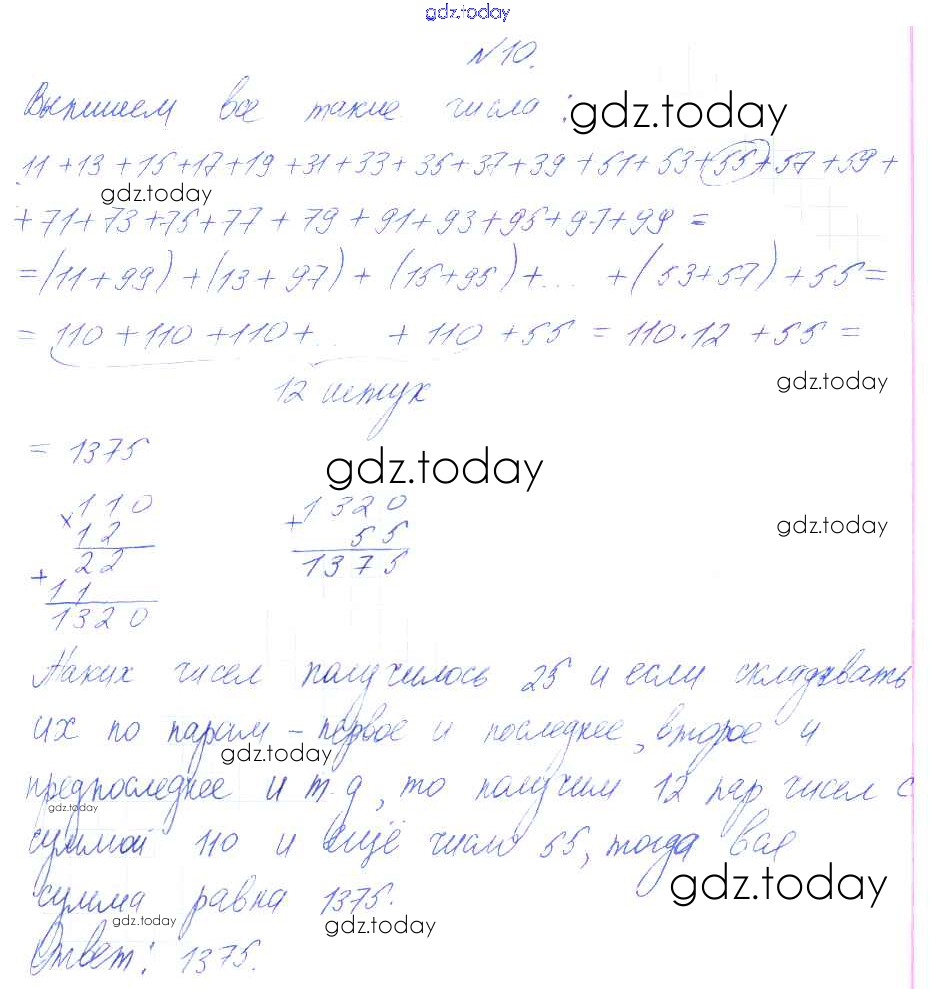 gdz.today
№10.
Выпишем все такие числа: gdz.today
11+13+15+17+19+31+33+35+37+39+51+53+55+57+59+
gdz.today
+71+73+75+77+79+91+93+95+97+99=
=(11+99)+(13+97)+(15+95)+... +(53+57)+55=
=110+110+110+... +110+55=110·12+55=
12 штук
gdz.today
=1375
gdz.today
×110 +1320
12 55
gdz.today
22 1375
+11
1320
Таких чисел получилось 25 и если складывать
их по парам - первое и последнее, второе и
gdz.today
предпоследнее и т.д, то получим 12 пар чисел с
gdz.today
суммой 110 и ещё число 55, тогда вся
gdz.today
сумма равна 1375.
gdz.today
gdz.today
Ответ: 1375.